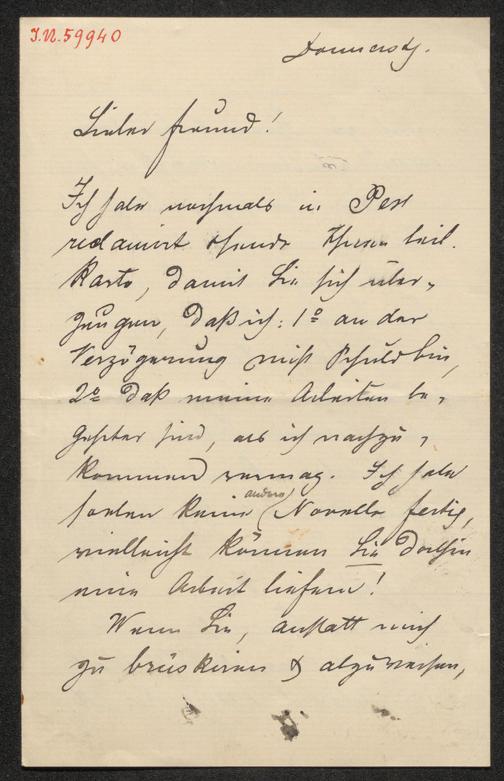 J.N. 59940
Donnerstg.
Lieber Freund!
Ich habe nochmals in Pest
reclamirt & sende Ihnen beil.
Karte, damit Sie sich über-
zeugen, daß ich: 1º an der
Verzögerung nicht Schuld bin,
2º daß meine Arbeiten be-
gehrter sind, als ich nachzu-
kommen vermag. Ich habe
soeben keine andere Novelle fertig,
vielleicht können Sie dorthin
eine Arbeit liefern!
Wenn Sie, anstatt mich
zu brüskiren & abzuweisen,